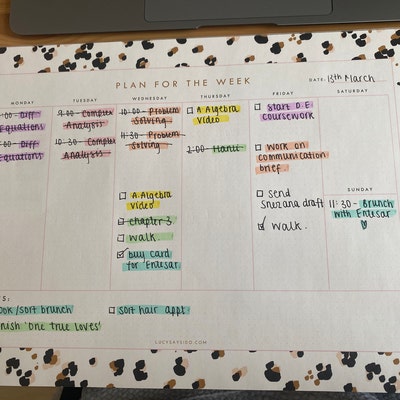 PLAN FOR THE WEEK
DATE: 13th March
MONDAY
:00 - Diff
Equations
:00 - Diff
Equations
TUESDAY
9:00 - Complex
Analysis
10:30 - Complex
Analysis
WEDNESDAY
10:00 - Problem
Solving
11:30 - Problem
Solving
A.Algebra
video
chapter 3
walk
buy card
for Entesar
THURSDAY
A.Algebra
video
2:00 -
FRIDAY
Start D.E
coursework
work on
communication
brief
send
snezana draft
walk.
SATURDAY
SUNDAY
11:30 - Brunch
with Entesar
S:
ook/sort brunch
nish 'One true loves'
sort hair appt
LUCYSAYSIDO.COM